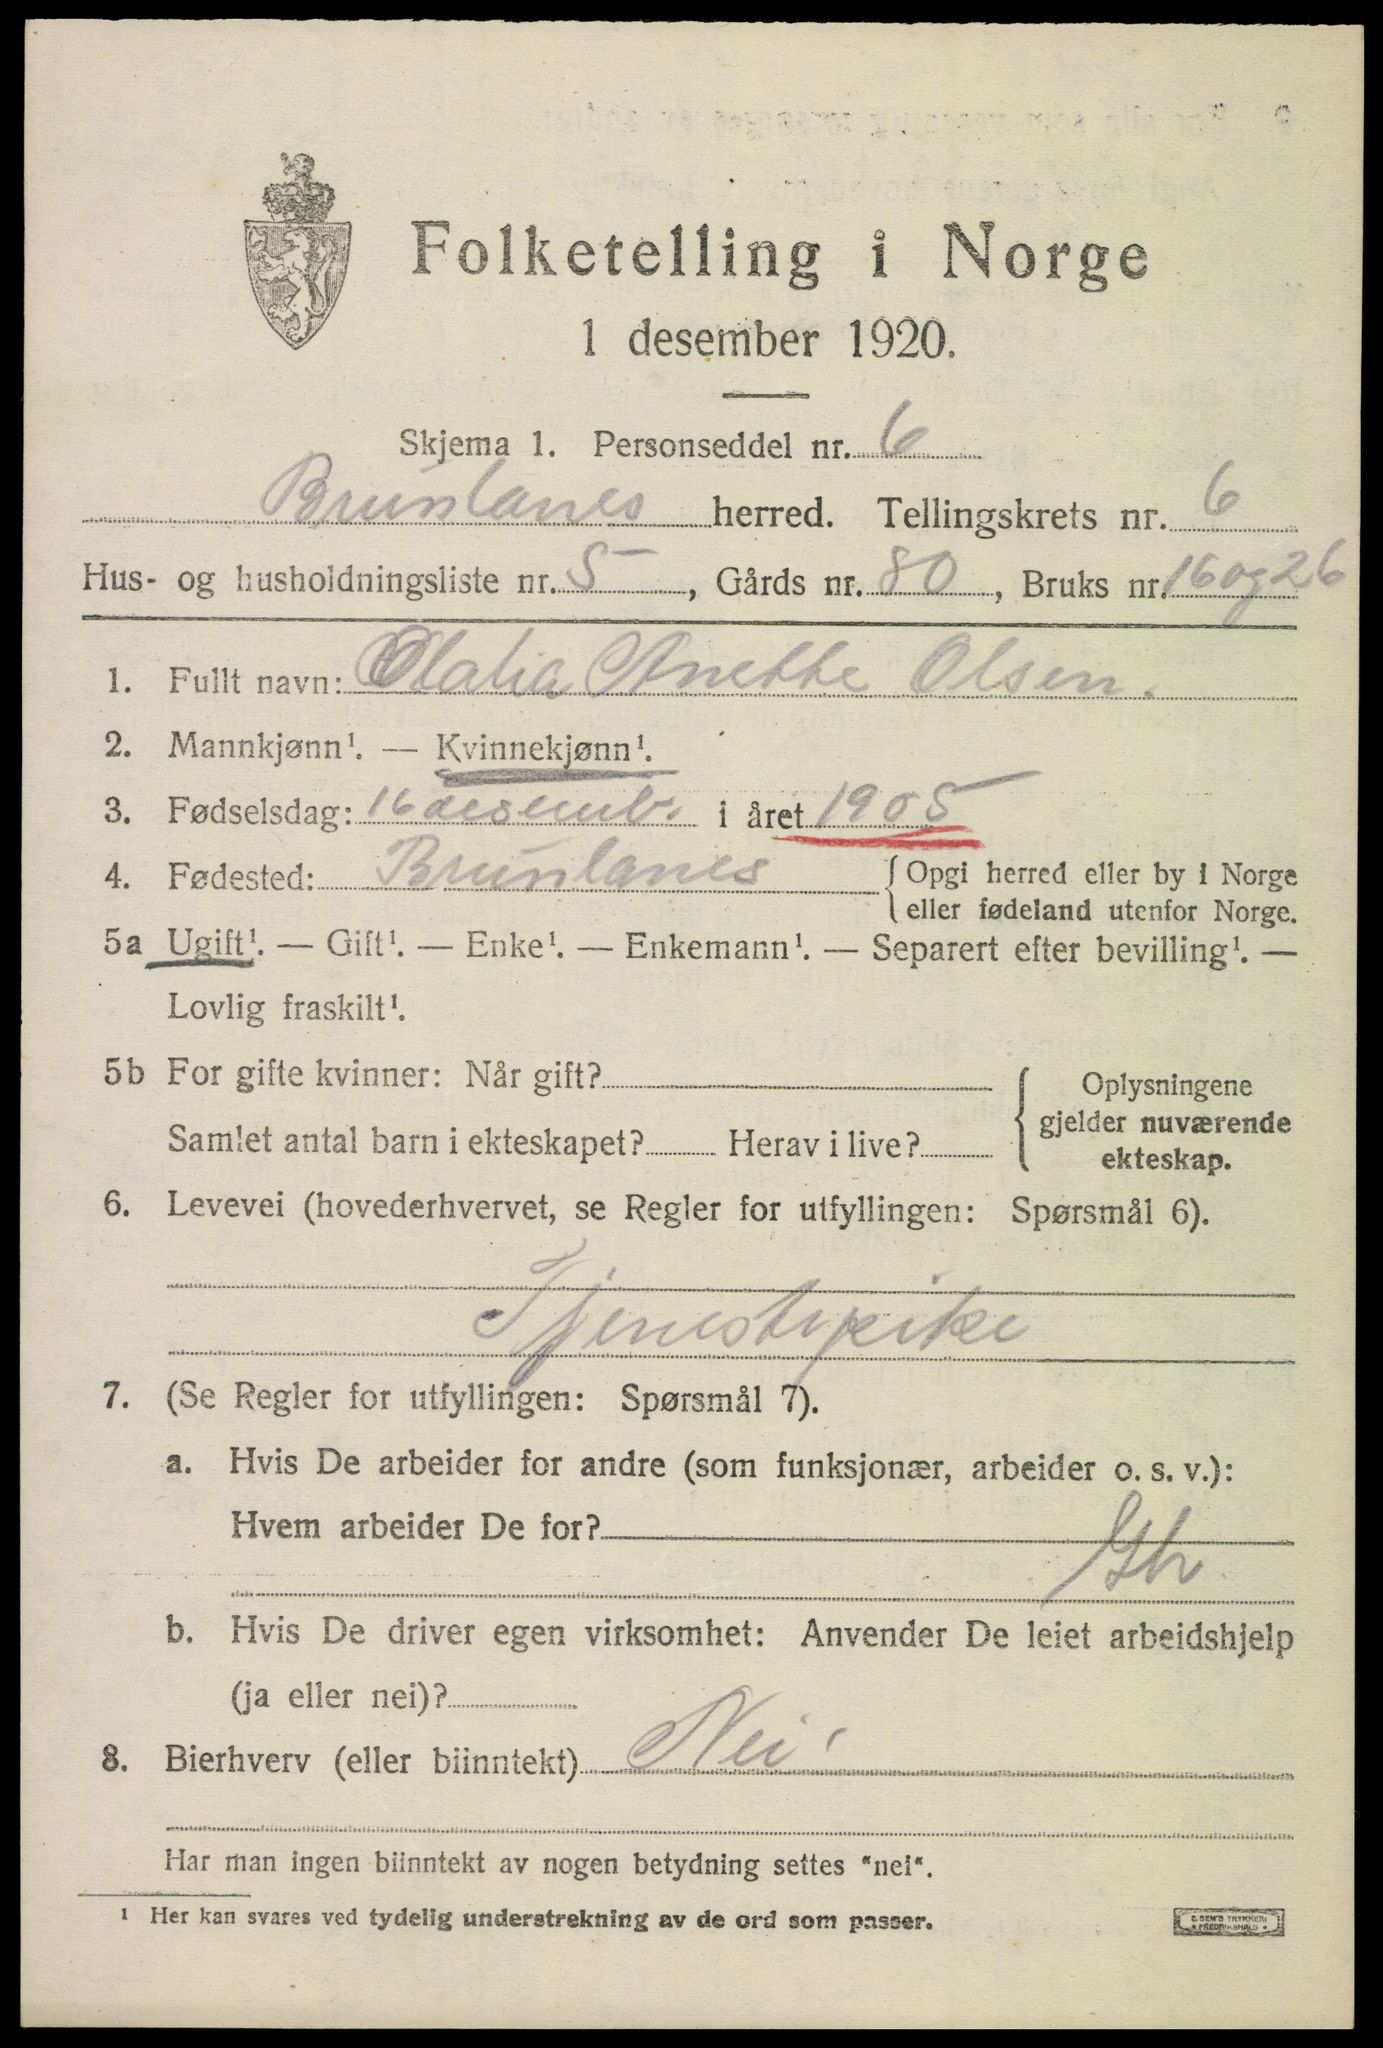 Folketelling i Norge
1 desember 1920.
Skjema 1. Personseddel nr. 6
Brunlanes herred. Tellingskrets nr. 6
Hus- og husholdningsliste nr. 5, Gårds nr. 80, Bruks nr. 16 og 26
1. Fullt navn: Olalia Anette Olsen.
2. Mannkjønn¹. — Kvinnekjønn¹.
3. Fødselsdag: 16 desemb. i året 1905
4. Fødested: Brunlanes { Opgi herred eller by i Norge
eller fødeland utenfor Norge.
5a Ugift¹. — Gift¹. — Enke¹. — Enkemann¹. — Separert efter bevilling¹. —
Lovlig fraskilt¹.
5b For gifte kvinner: Når gift?
Samlet antal barn i ekteskapet? Herav i live?
{ Oplysningene
gjelder nuværende
ekteskap.
6. Levevei (hovederhvervet, se Regler for utfyllingen: Spørsmål 6).
Tjenestpike
7. (Se Regler for utfyllingen: Spørsmål 7).
a. Hvis De arbeider for andre (som funksjonær, arbeider o. s. v.):
Hvem arbeider De for?
b. Hvis De driver egen virksomhet: Anvender De leiet arbeidshjelp
(ja eller nei)?
8. Bierhverv (eller biinntekt) Nei
Har man ingen biinntekt av nogen betydning settes "nei".
1 Her kan svares ved tydelig understrekning av de ord som passer.
E. SEM'S TRYKKERI
* FREDRIKSHALD *